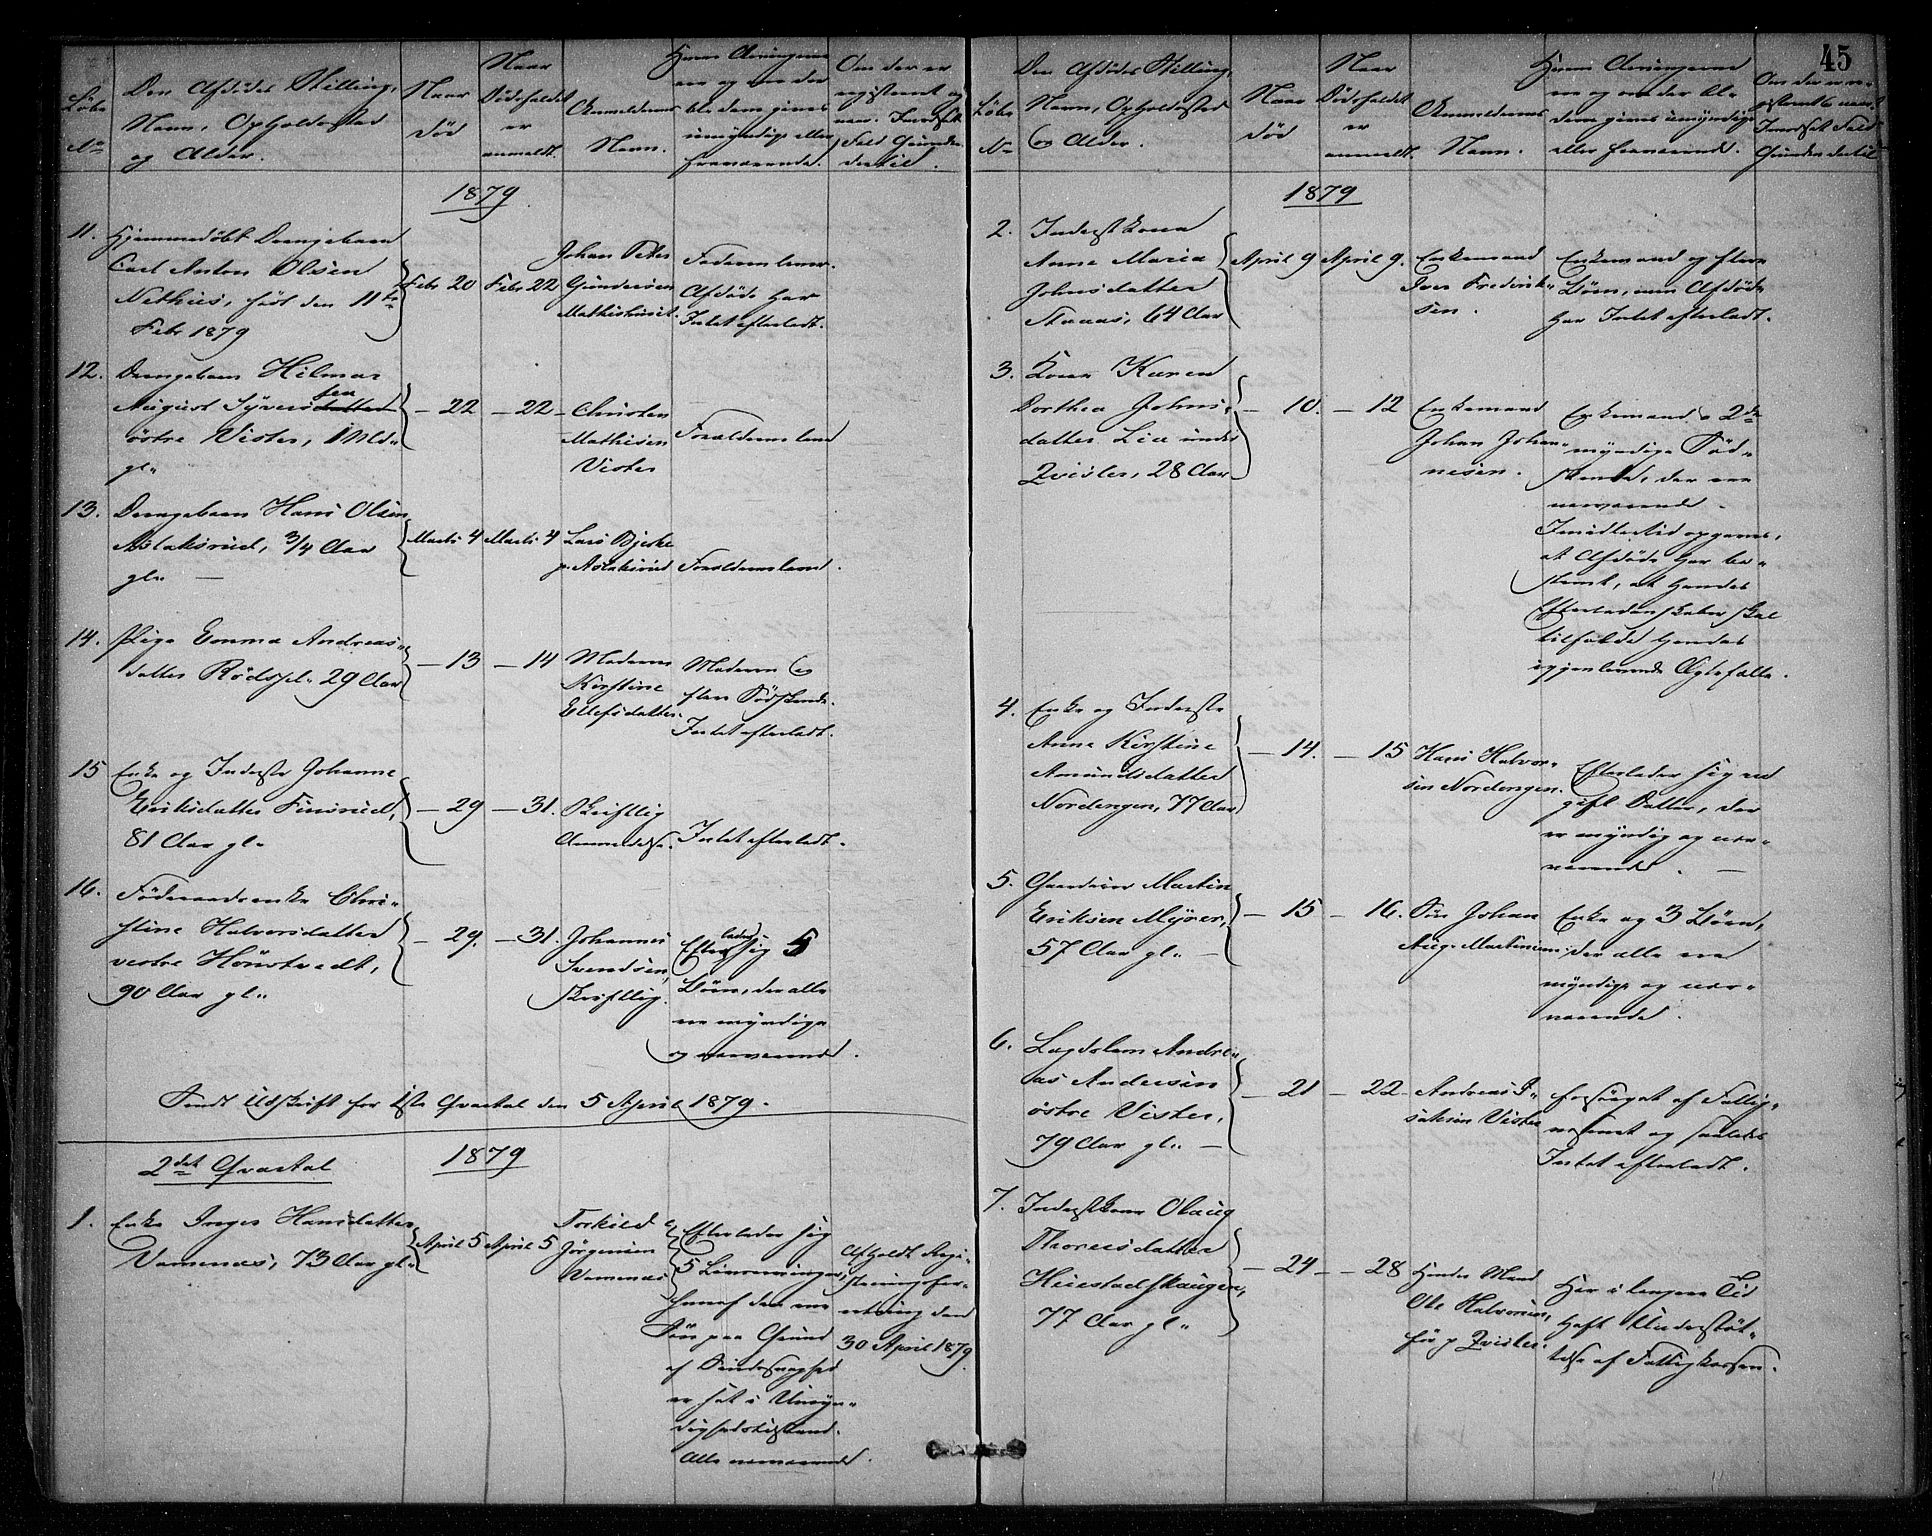 45
Löbe
No
Den Afdødes Stilling,
Navn, Opholdssted
og Alder.
Naar
død
Naar
Dødsfaldet
er
anmeldt.
Anmelderens
Navn.
Hvem Arvingerne
ere og om der
blandt dem gives
umyndige eller
fraværende.
Om der er
registreret og
Fald Grunden
dertil.
1879
11. Hjemmedøbt Drengebarn
Carl Anton Olsen
født den 11te
Febr 1879
Febr 20
Febr 22
Johan Peter
Gundersen
Mathishuset.
Faderen lever.
Afdøde har
Intet efterladt.
12. Drengebarn Hilmar
August Syversdatter sen
østre Vister, 1 Md.
gl.
— 22
— 22
Christen
Mathisen
Vister
Forældrene leve
13. Drengebarn Hans Olsen
Aslaksrud, 3/4 Aar
gl. —
Marts 4
Marts 4
Lars Bjerke
p. Aslaksrud
Forældrene leve.
14. Pige Emma Andreas-
datter Rødspl. 29 Aar
— 13
— 14
Moderen
Kirstine
Ellefsdatter.
Moderen og
flere Sødskende.
Intet efterladt.
15 Enke og Inderste Johanne
Eriksdatter Finsrud,
81 Aar gl.
— 29
— 31.
Skriftlig
Anmeldelse.
Intet efterladt.
16. Føderaadsenke Chri-
stine Halvorsdatter
vestre Hønstvedt,
90 Aar gl.
— 29.
— 31.
Johannes
Svendsen,
skriftlig.
Efterlader sig 5
Børn, der alle
ere myndige
og nærværende.
Sendt Udskrift for 1ste Qvartal den 5 April 1879.
2det Qvartal
1879
1. Enke Inger Hansdatter
Vamenæs, 73 Aar gl.
April 5
April 5
Torkild
Jørgensen
Vamenæs
Efterlader sig
5 Livsarvinger,
hvoraf den ene
Søn paa Grund
af Sindssvaghed
er sat i Umyn-
dighedstilstand.
Alle nærværende.
Afholdt Regi-
streringsfor-
retning den
30 April 1879.
Löbe
No
Den Afdødes Stilling,
Navn, Opholdssted
og Alder.
Naar
død
Naar
Dødsfaldet
er
anmeldt.
Anmelderens
Navn.
Hvem Arvingerne
ere og om der bl.
dem gives umyndige
eller fraværende.
Om der er re-
gistreret
Imodsat Fald
Grunden dertil
1879
2. Inderstkone
Anne Maria
Johnsdatter
64 Aar
April 9
April 9.
Enkemand
Iver Frederik-
sen.
Enkemand og flere
Børn, men Afdøde
har Intet efterladt.
3. Kone Karen
Dorthea Johns-
datter Lia under
Qvisler, 28 Aar
— 10.
— 12
Enkemand
Johan Johan-
nesen.
Enkemand o 2de
myndige Sød-
skende, der ere
nærværende.
Imidlertid opgives,
at Afdøde har be-
stemt, at hendes
Efterladenskaber skal
tilfalde hendes
igjenlevende Ægtefælle.
4. Enke og Inderste
Anne Kirstine
Amundsdatter
Nordengen, 77 Aar
— 14.
— 15
Hans Halvor-
sen Nordengen.
Efterlader sig en
gift Datter, der
er myndig og nær-
værende. —
5. Gaardeier Martin
Eriksen Myrer,
57 Aar gl. —
— 15
— 16.
Søn Johan
Aug. Martinsen
Enke og 3 Børn,
der alle ere
myndige og nær-
værende.
6. Lægdslem Andre-
as Andersen
østre Vister,
79 Aar gl. —
— 21
— 22
Andreas I-
saksen Vister
forsørget af Fattig-
væsenet og saaledes
Intet efterladt.
7. Inderstkone Olaug
Thoresdatter
Huestadskaugen,
77 Aar gl.
— 24
— 28
Hendes Mand
Ole Halvorsen,
før p Qvisler.
Har i længere Tid
haft Understøt-
telse af Fattigkassen.